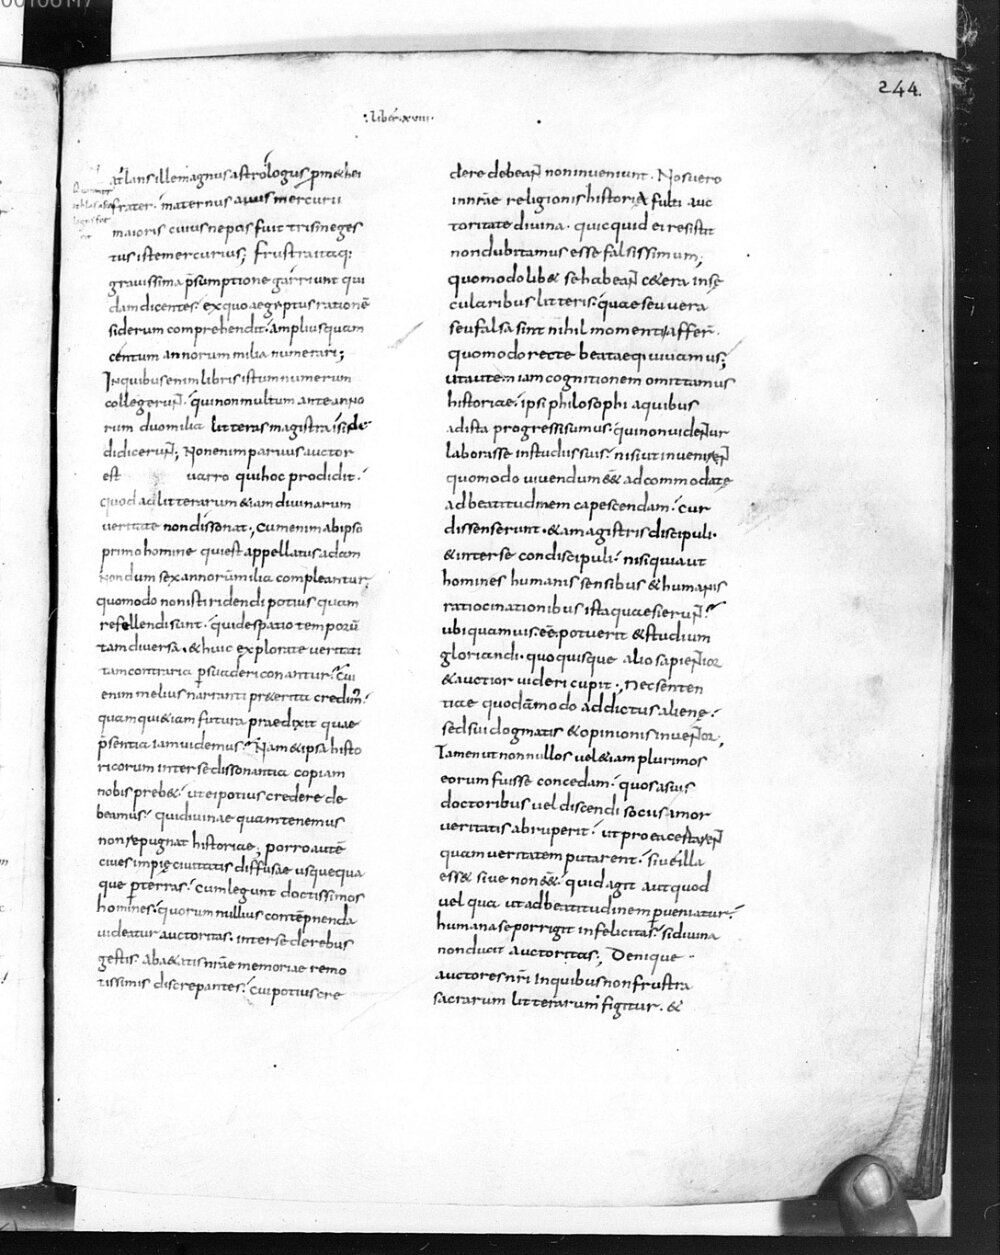 244.
: liber · xviii ·
atlans ille magnus astrologus promethei
frater · maternus avus mercurii
maioris cuius nepos fuit trismeges
tus iste mercurius; frustra itaq:
gravissima p̄sumptione garriunt qui
dam dicentes · ex quo aegeptus rationē
siderum comprehendit · amplius quam
centum annorum milia numerari;
In quibus enim libris istum numerum
collegerunt · qui non multum ante anno
rum duo milia litteras magistra iside
didicerunt; Non enim parvus auctor
est varro qui hoc prodidit ·
quod ad litterarum &iam divinarum
veritate non dissonat; Cum enim ab ipso
primo homine qui est appellatus adam
nondum sex annorū milia compleantur,
quomodo non isti ridendi potius quam
refellendi sunt · qui de spatio temporū
tam diversa · & huic explorate veritati
tam contraria p̄suadere conantur? Cui
enim melius narranti pr&erita credim'
quam qui &iam futura praedixit quae
p̄sentia iam videmus? Nam & ipsa histo
ricorum inter se dissonantia copiam
nobis preb& · ut ei potius credere de
beamus · qui divinae quam tenemus
non repugnat historiae; porro autē
cives impię civitatis diffusae usquequa
que per terras · cum legunt doctissimos
homines · quorum nullius contēpnenda
videatur auctoritas · inter se de rebus
gestis · ab a&atis nr̄ae memoriae remo
tissimis discrepantes · cui potius cre
dere debeant non inveniunt · Nos vero
in nr̄ae religionis historia fulti auc
toritate divina · quicquid ei resistit
non dubitamus esse falsissimum;
quomodolib& se habeant c&era in se
cularibus litteris · quae seu vera
seu falsa sint nihil momenti affer̄ ·
quo modo recte beataeq; vivamus;
ut autem iam cognitionem omittamus
historiae · ipsi philosophi a quibus
ad ista progressi sumus · qui non videntur
laborasse in studiis suis · nisi ut invenirent
quomodo vivendum ess& adcommodate
ad beatitudinem capescendam · cur
dissenserunt · & a magistris discipuli ·
& inter se condiscipuli · nisi quia ut
homines humanis sensibus & humanis
ratiocinationibus ista quaesierunt?
ubi quamvis · eē · potuerit & studium
gloriandi · quo quisque alio sapientior
& auctior videri cupit; Nec senten
tiae quodāmodo addictus alienę ·
sed sui dogmatis & opinionis inventor;
Tamen ut nonnullos vel &iam plurimos
eorum fuisse concedam · quos a suis
doctoribus vel discendi sociis amor
veritatis abruperit · ut pro ea certarent
quam veritatem putarent · sive illa
ess& sive non ess& · quid agit aut quod
vel qua ut ad beatitudinem p̄veniatur?
humana se porrigit infelicitas · si divina
non ducit auctoritas; Denique
auctores nr̄i in quibus non frustra
sacrarum litterarum figitur · &